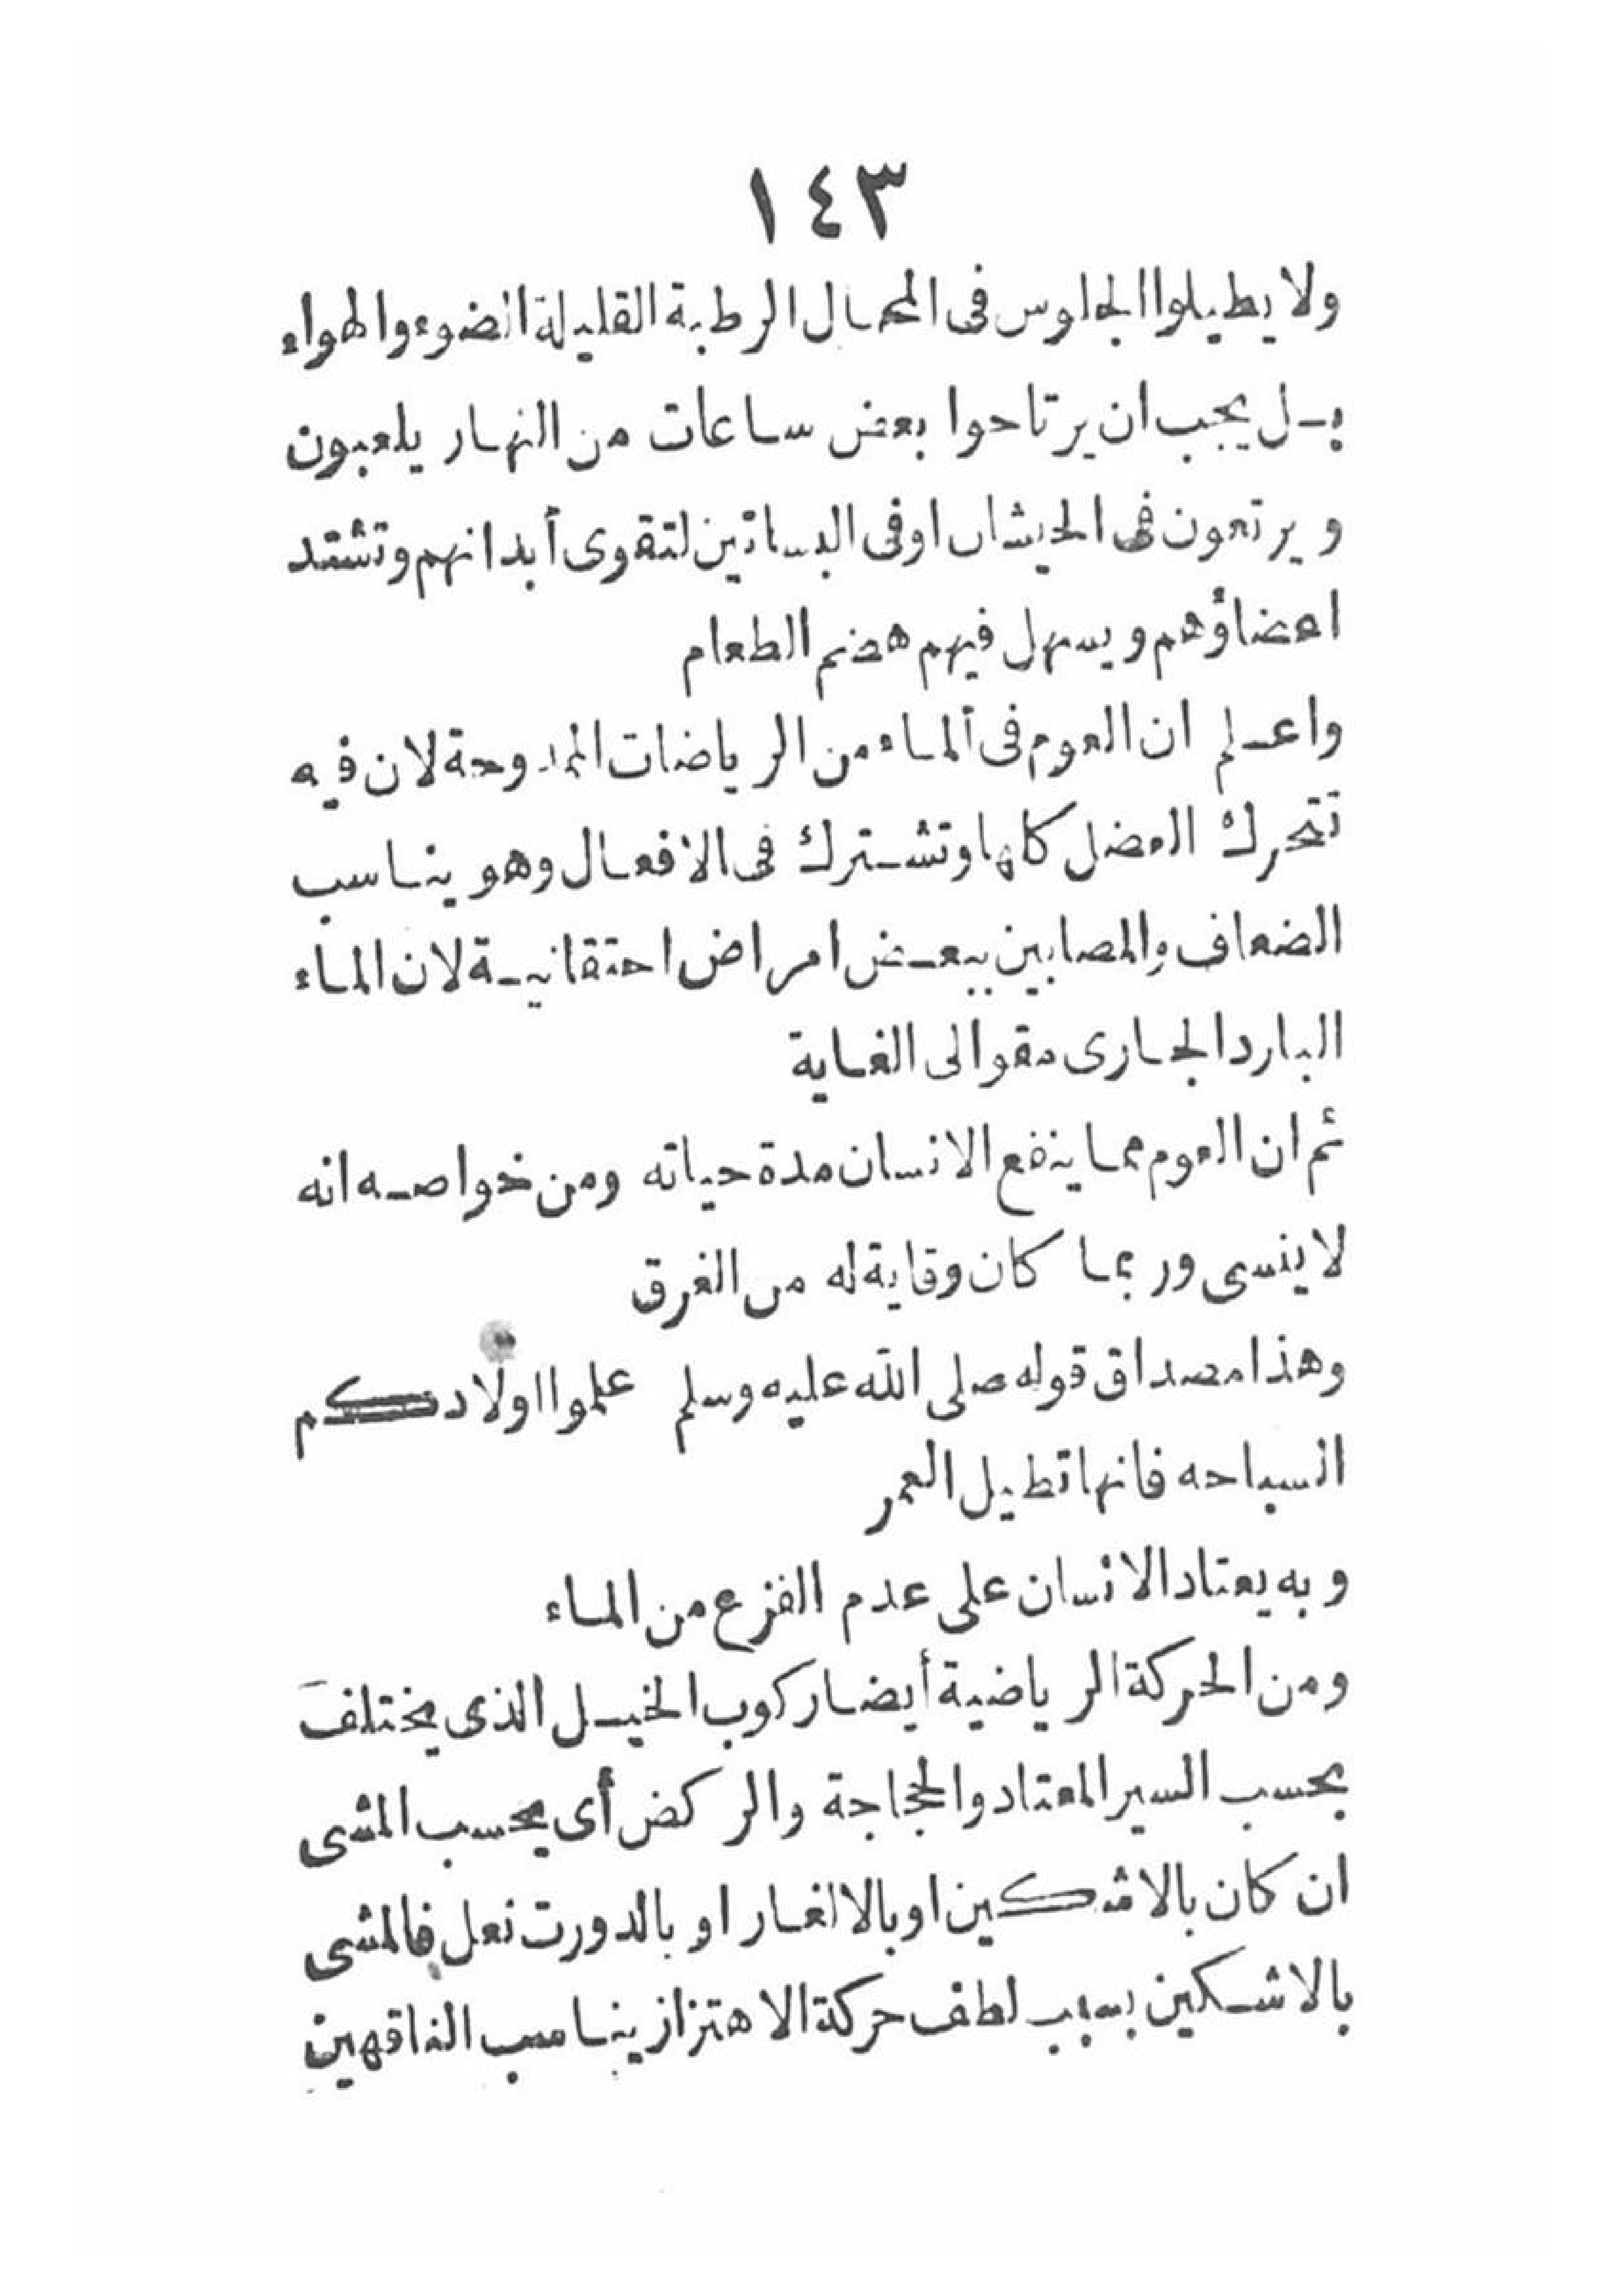 ١٤٣
ولا يطيلوا الجلوس فى المحال الرطبة القليلة الضوء والهواء
بل يجب ان يرتاحوا بعض ساعات من النهار يلعبون
ويرتعون فى الحيشان اوفى البساتين لتقوى أبدانهم وتشتد
اعضاؤهم ويسهل فيهم هضم الطعام
واعلم ان العوم فى الماء من الرياضات الممدوحة لان فيه
تتحرك العضل كلها وتشترك فى الافعال وهو يناسب
الضعاف والمصابين ببعض امراض احتقانية لان الماء
البارد الجارى مقو الى الغاية
ثم ان العوم مما ينفع الانسان مدة حياته ومن خواصه انه
لا ينسى وربما كان وقاية له من الغرق
وهذا مصداق قوله صلى الله عليه وسلم علموا اولادكم
السباحه فانها تطيل العمر
وبه يعتاد الانسان على عدم الفزع من الماء
ومن الحركة الرياضية أيضا ركوب الخيل الذى يختلف
بحسب السير المعتاد والحجاجة والركض أى بحسب المشى
ان كان بالاشكين او بالالغار او بالدورت نعل فالمشى
بالاشكين بسبب لطف حركة الاهتزاز يناسب الناقهين